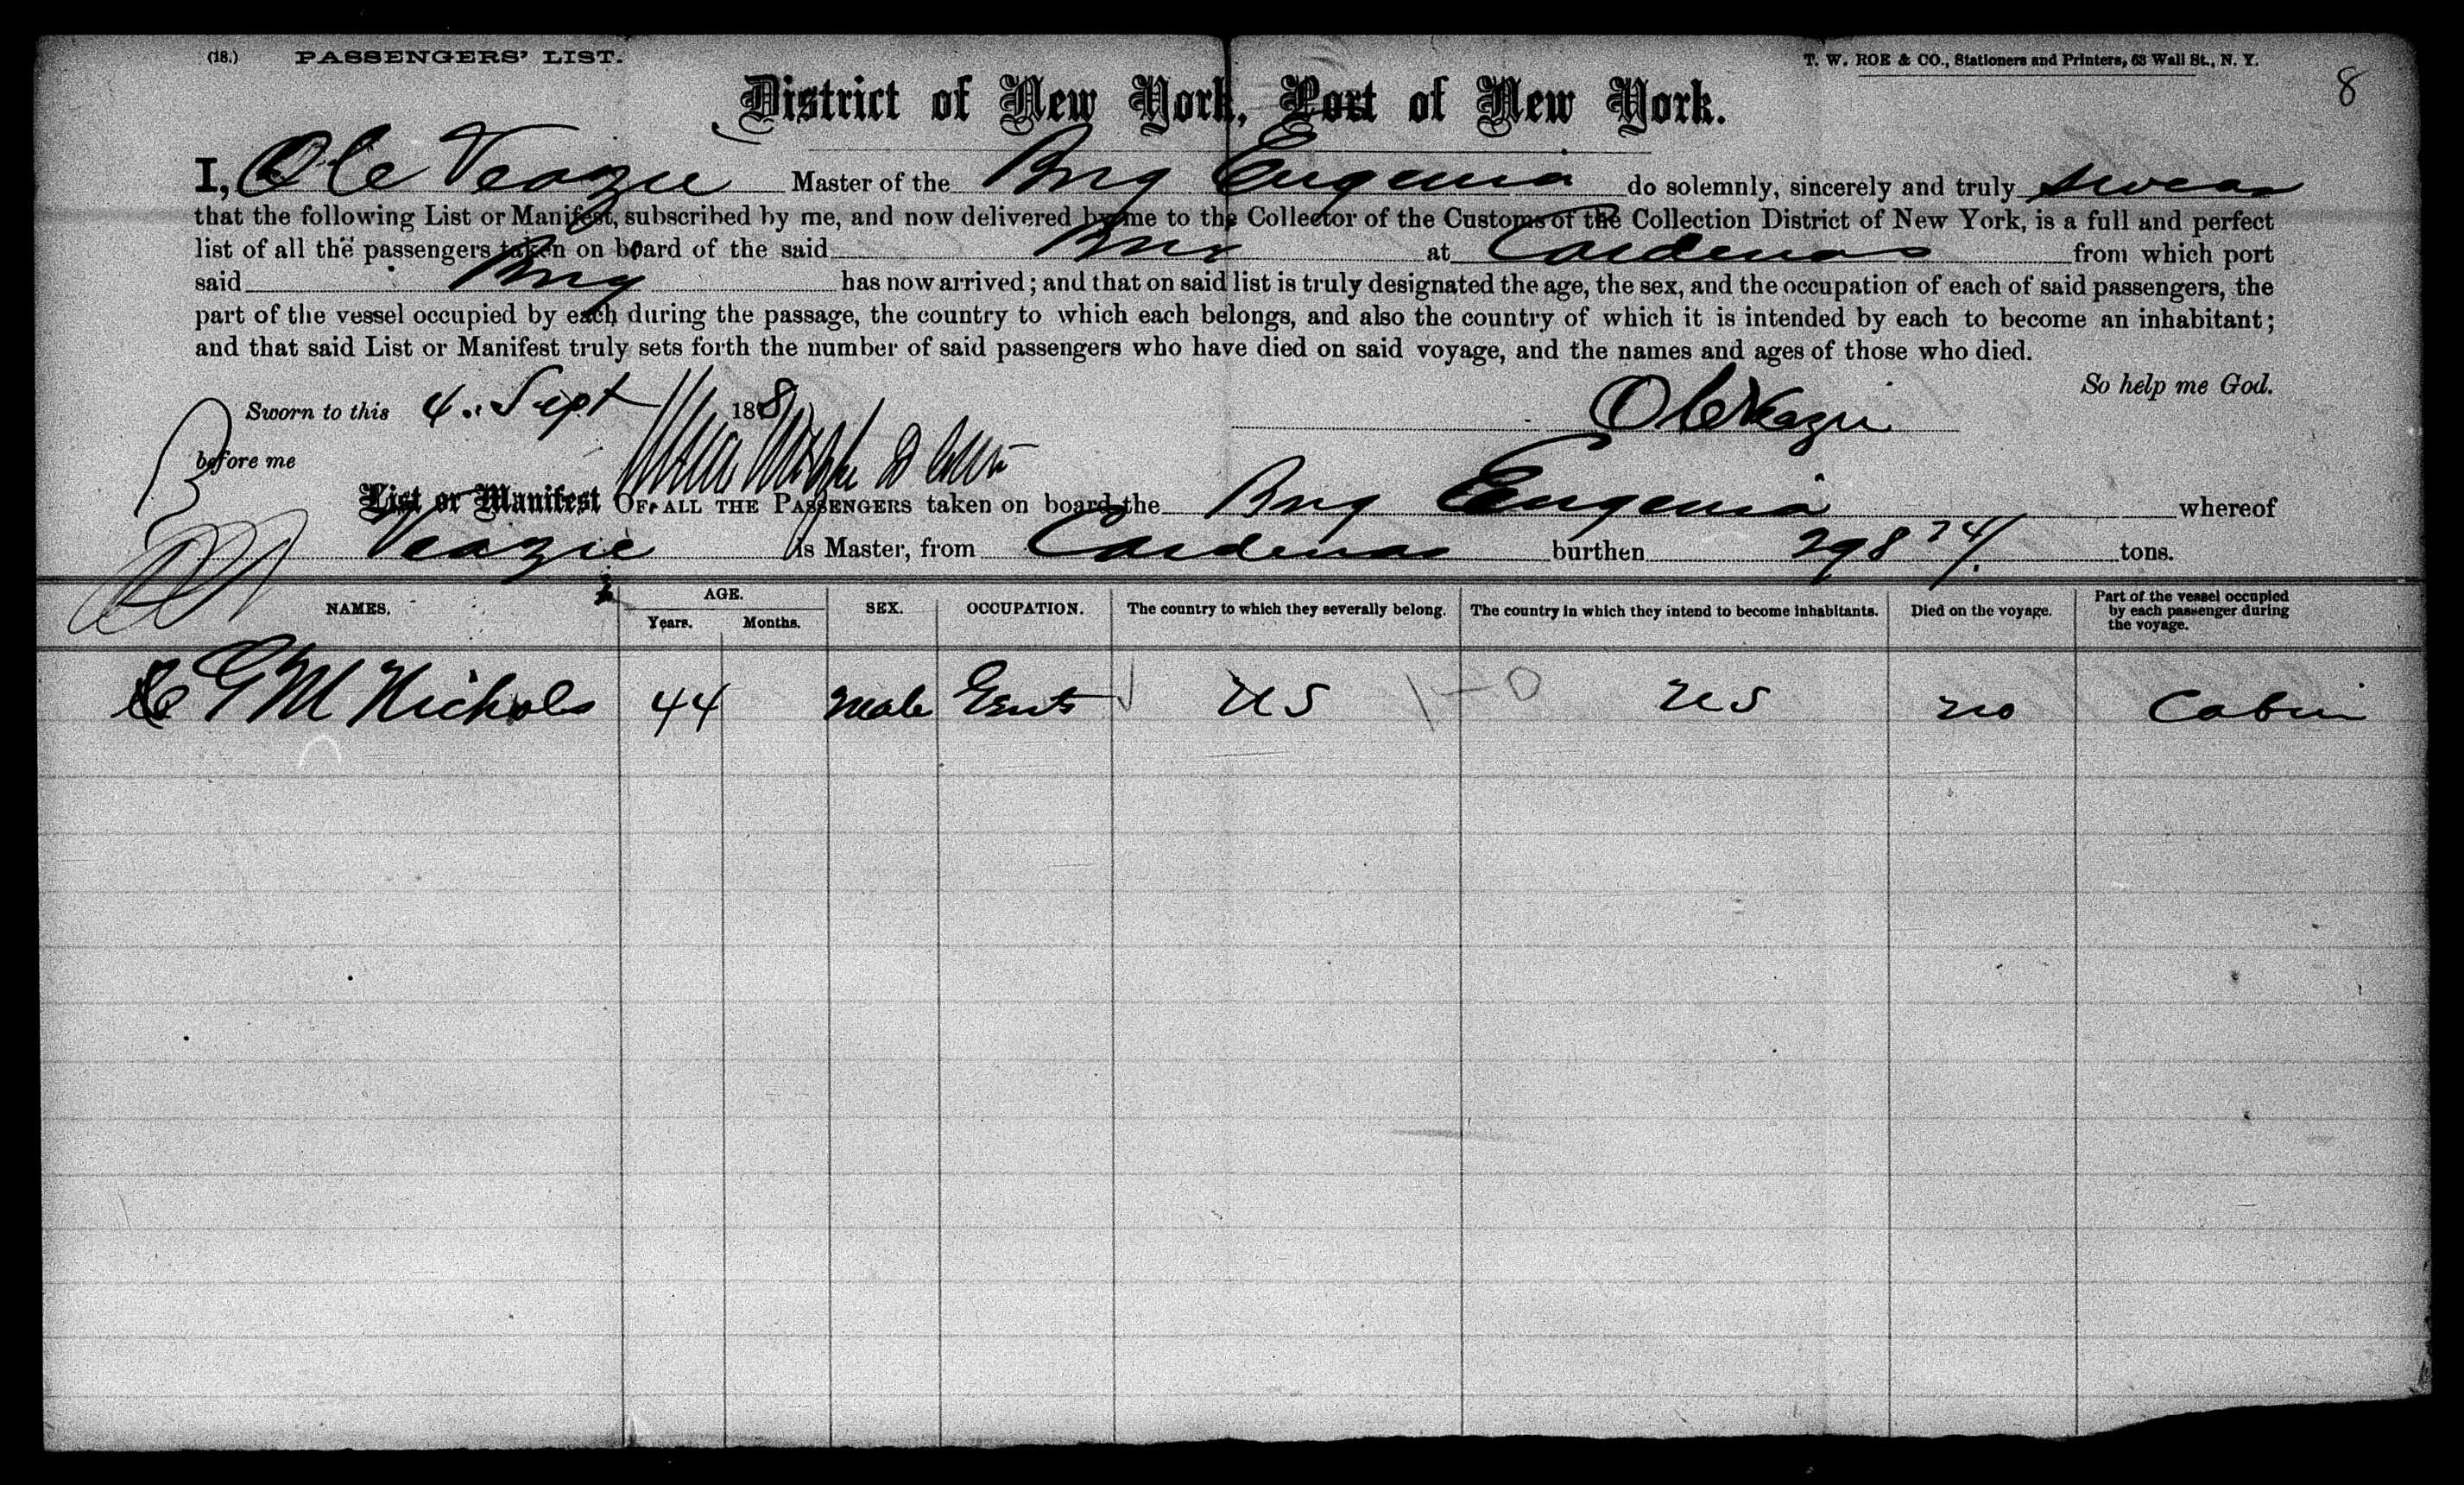 (18.) PASSENGERS' LIST. T. W. ROE & CO., Stationers and Printers, 63 Wall St., N. Y.
8
District of New York, Port of New York.
I, Ole Veazie Master of the Brig Eugenia do solemnly, sincerely and truly swear
that the following List or Manifest, subscribed by me, and now delivered by me to the Collector of the Customs of the Collection District of New York, is a full and perfect
list of all the passengers taken on board of the said Brig at Cardenas from which port
said Brig has now arrived; and that on said list is truly designated the age, the sex, and the occupation of each of said passengers, the
part of the vessel occupied by each during the passage, the country to which each belongs, and also the country of which it is intended by each to become an inhabitant;
and that said List or Manifest truly sets forth the number of said passengers who have died on said voyage, and the names and ages of those who died.
So help me God.
Sworn to this 4. Sept 188 Ole Veazie
before me
List or Manifest OF ALL THE PASSENGERS taken on board the Brig Eugenia whereof
Veazie is Master, from Cardenas burthen 298 74 tons.
NAMES. AGE. Years. Months. SEX. OCCUPATION. The country to which they severally belong. The country in which they intend to become inhabitants. Died on the voyage. Part of the vessel occupied by each passenger during the voyage.
G M Nichols 44 Male Gent US US no Cabin